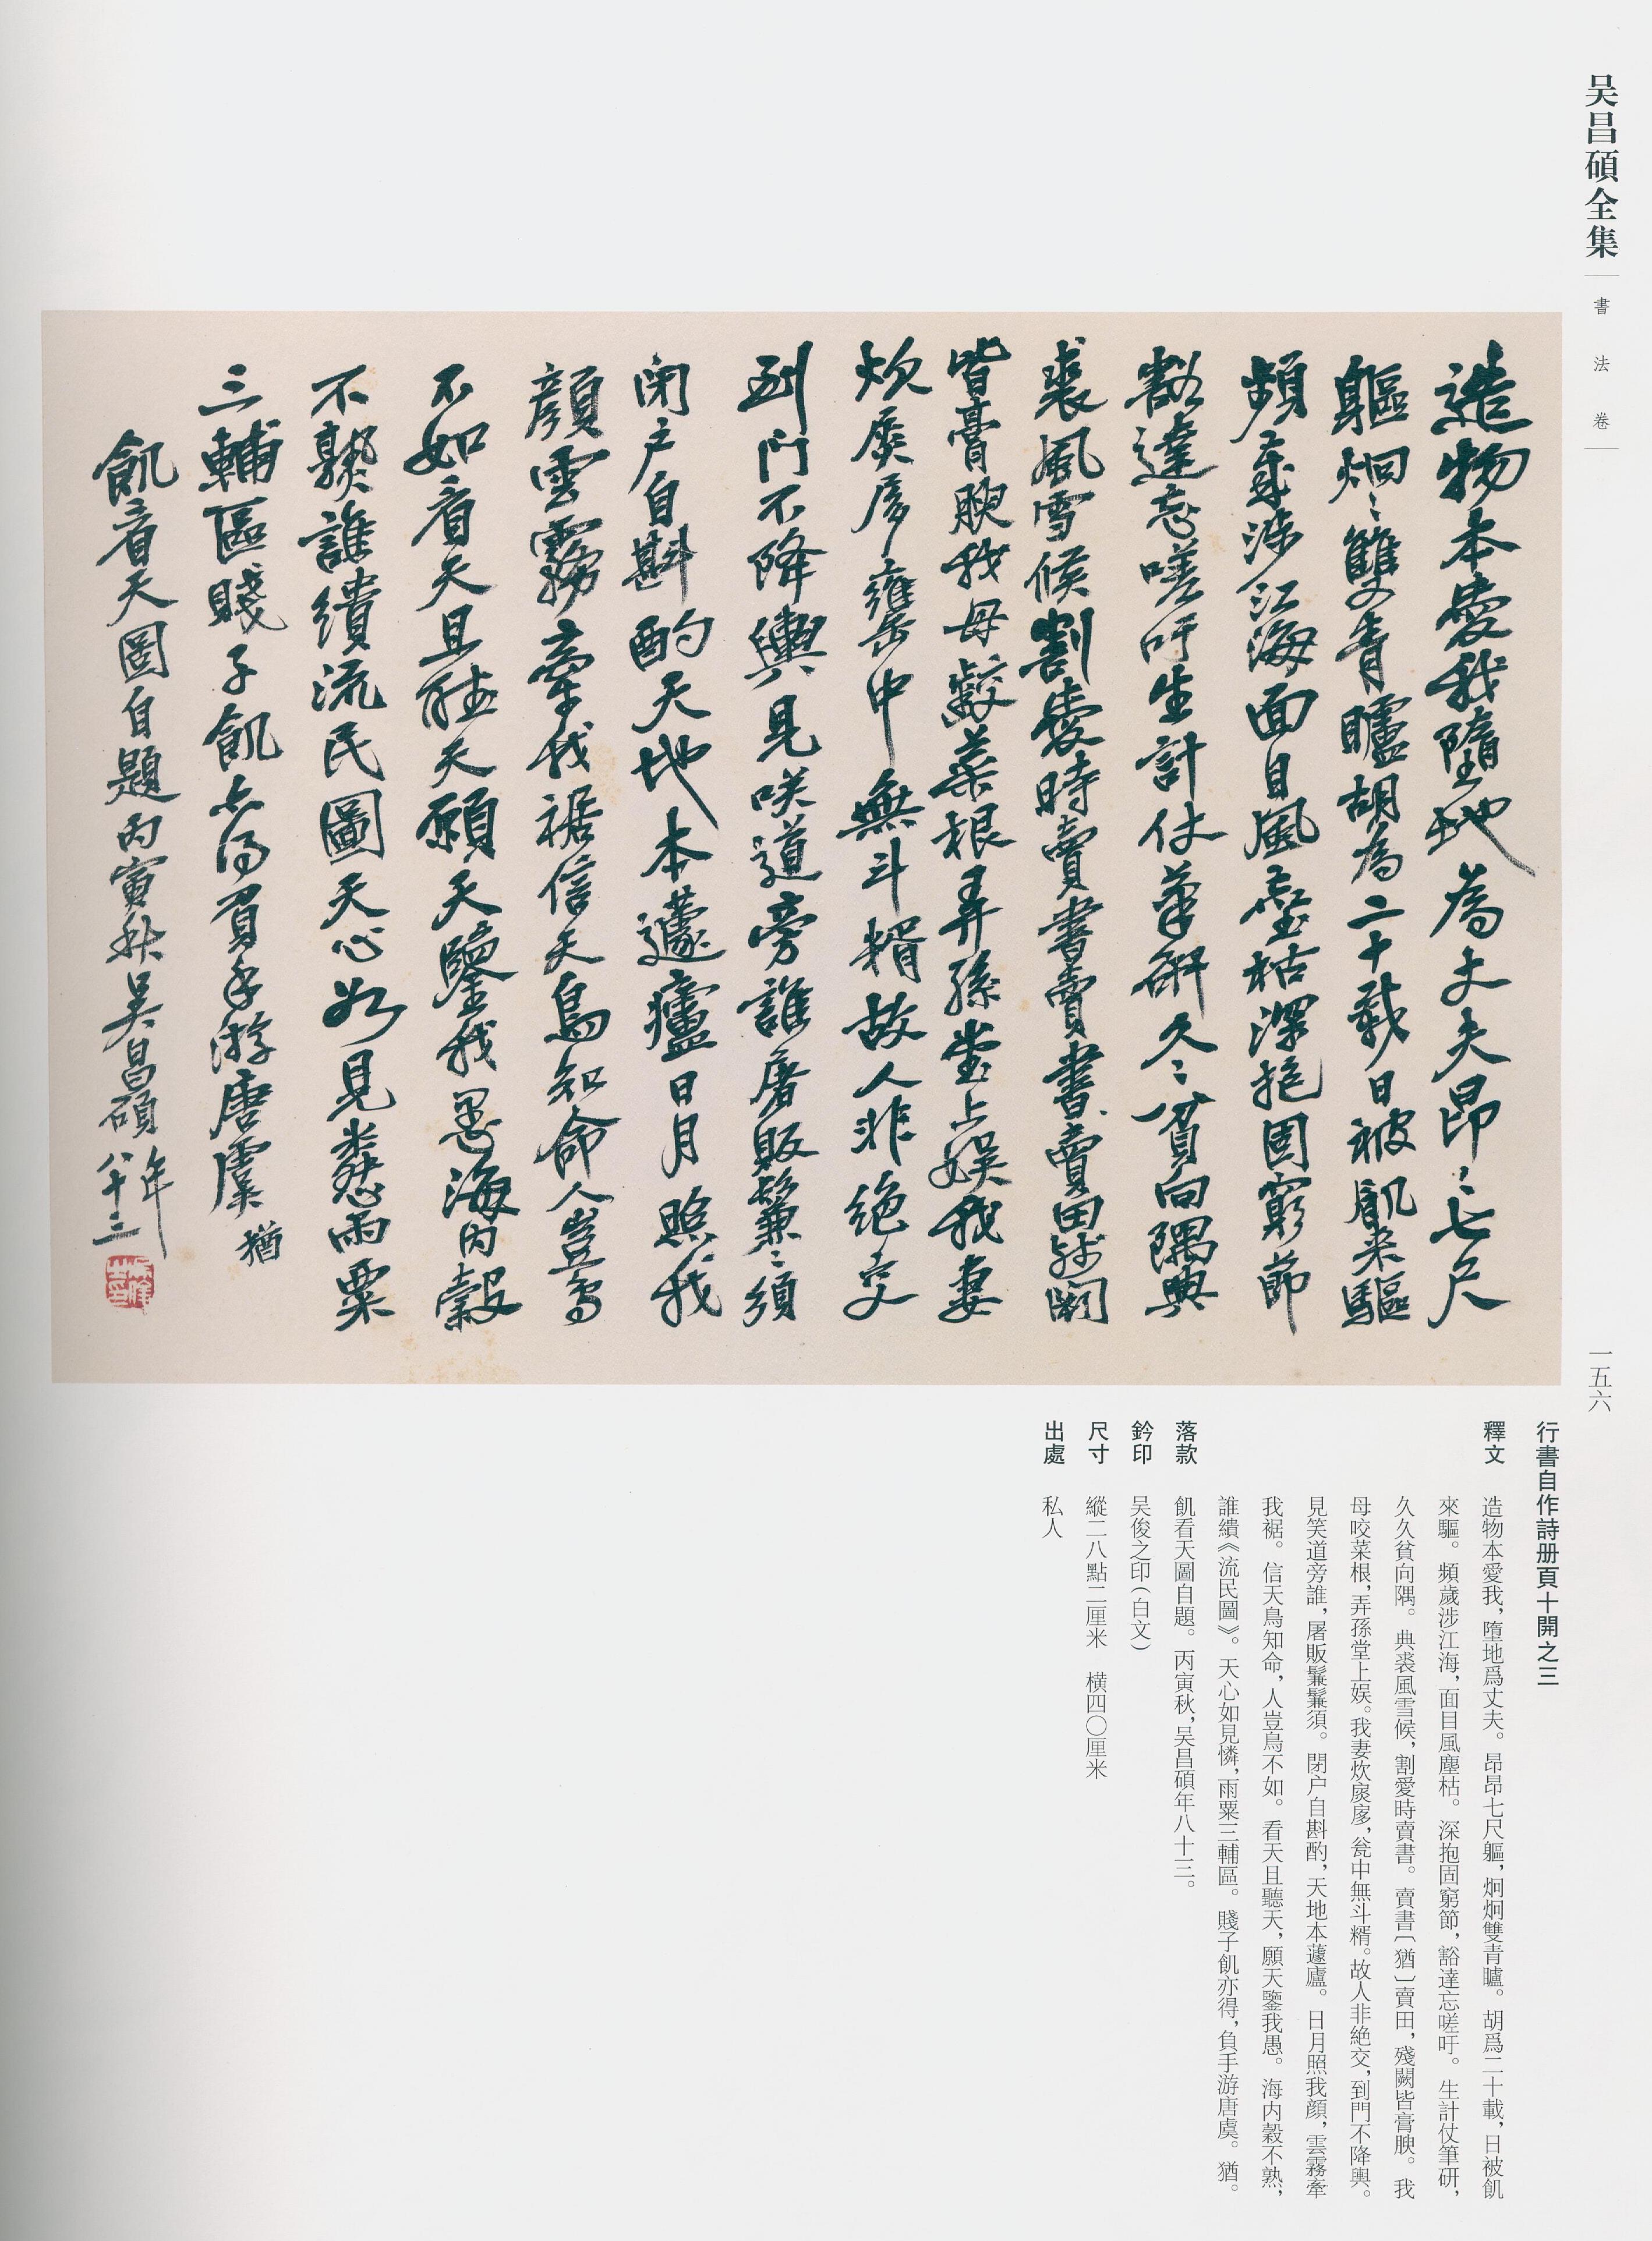 吴昌碩全集
書法卷
一五六
造物本愛我墮地為丈夫昂〻七尺
軀炯〻雙青矑胡為二十載日被飢来驅
頻歲涉江海面目風塵枯深抱固窮節
豁達忘嗟吁生計仗筆研久〻貧向隅典
裘風雪候割愛時賣書賣書、賣田殘闕
皆膏腴我母齩菜根弄孫堂上娱我妻
炊扊扅甕中無斗糈故人非絶交
到門不降輿見咲道旁誰屠販鬑〻須
閉户自斟酌天地本蘧廬日月照我
顔雲霧牽我裾信天鳥知命人豈鳥
不如看天且聴天願天鑒我愚海内穀
不熟誰繢流民圖天心如見憐雨粟
三輔區賤子飢亦得負手游唐虞 猶
飢看天圖自題丙寅秋吴昌碩年
八十三
行書自作詩册頁十開之三
釋文 造物本愛我，墮地爲丈夫。昂昂七尺軀，炯炯雙青矑。胡爲二十載，日被飢
來驅。頻歲涉江海，面目風塵枯。深抱固窮節，豁達忘嗟吁。生計仗筆研，
久久貧向隅。典裘風雪候，割愛時賣書。賣書〔猶〕賣田，殘闕皆膏腴。我
母咬菜根，弄孫堂上娱。我妻炊扊扅，瓮中無斗糈。故人非絶交，到門不降輿。
見笑道旁誰，屠販鬑鬑須。閉户自斟酌，天地本蘧廬。日月照我顔，雲霧牽
我裾。信天鳥知命，人豈鳥不如。看天且聽天，願天鑒我愚。海内穀不熟，
誰繢《流民圖》。天心如見憐，雨粟三輔區。賤子飢亦得，負手游唐虞。猶。
落款 飢看天圖自題。丙寅秋，吴昌碩年八十三。
鈐印 吴俊之印（白文）
尺寸 縱二八點二厘米 橫四〇厘米
出處 私人